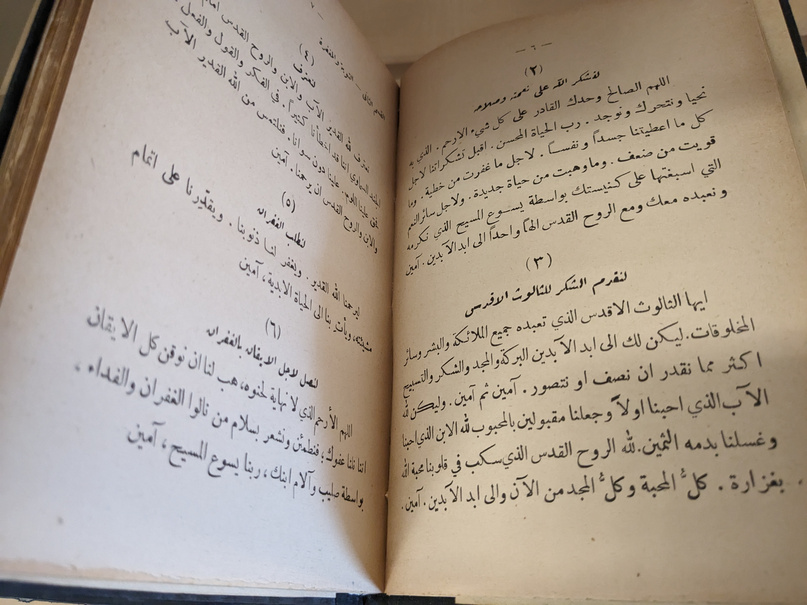 — ٦ —
(٢)
لنشكر الله على نعمه وصلاحه
اللهم الصالح وحدك القادر على كل شيء الارحم. الذي به
نحيا ونتحرك ونوجد. رب الحياة المحسن. اقبل تشكراتنا لاجل
كل ما اعطيتنا جسداً ونفساً. لاجل ما غفرت من خطية. وما
قويت من ضعف. وما وهبت من حياة جديدة. ولاجل سائر النعم
التي اسبغتها على كنيستك بواسطة يسوع المسيح الذي نكرمه
ونعبده معك ومع الروح القدس الهاً واحداً الى ابد الآبدين. آمين
(٣)
لنقدم الشكر للثالوث الاقدس
ايها الثالوث الاقدس الذي تعبده جميع الملائكة والبشر وسائر
المخلوقات. ليكن لك الى ابد الآبدين البركة والمجد والشكر والتسبيح
اكثر مما نقدر ان نصف او نتصور. آمين ثم آمين. وليكن لله
الآب الذي احبنا اولاً وجعلنا مقبولين بالمحبوب لله الابن الذي احبنا
وغسلنا بدمه الثمين. لله الروح القدس الذي سكب في قلوبنا محبة الله
بغزارة. كلُّ المحبة وكلُّ المجد من الآن والى ابد الآبدين. آمين.
— ٧
القسم الثاني – التوبة والمغفرة
(٤)
لنعترف
نعترف لله القدير. الآب والابن والروح القدس امام
الجند السماوي اننا قد اخطأنا كثيراً. في الفكر والقول والفعل.
علينا دون سوانا. فنلتمس من الله القدير الآب
والابن والروح القدس ان يرحمنا. آمين
(٥)
لنطلب الغفران
ليرحمنا الله القدير. ويغفر لنا ذنوبنا. ويقدّرنا على اتمام
مشيئته، ويأت بنا الى الحياة الابدية، آمين
(٦)
لنصل لاجل الايقان بالغفران
اللهم الأرحم الذي لا نهاية لحنوه، هب لنا ان نوقن كل الايقان
اننا نلنا عفوك؛ فنطمئن ونشعر بسلام من نالوا الغفران والفداء،
بواسطة صليب وآلام ابنك، ربنا يسوع المسيح، آمين